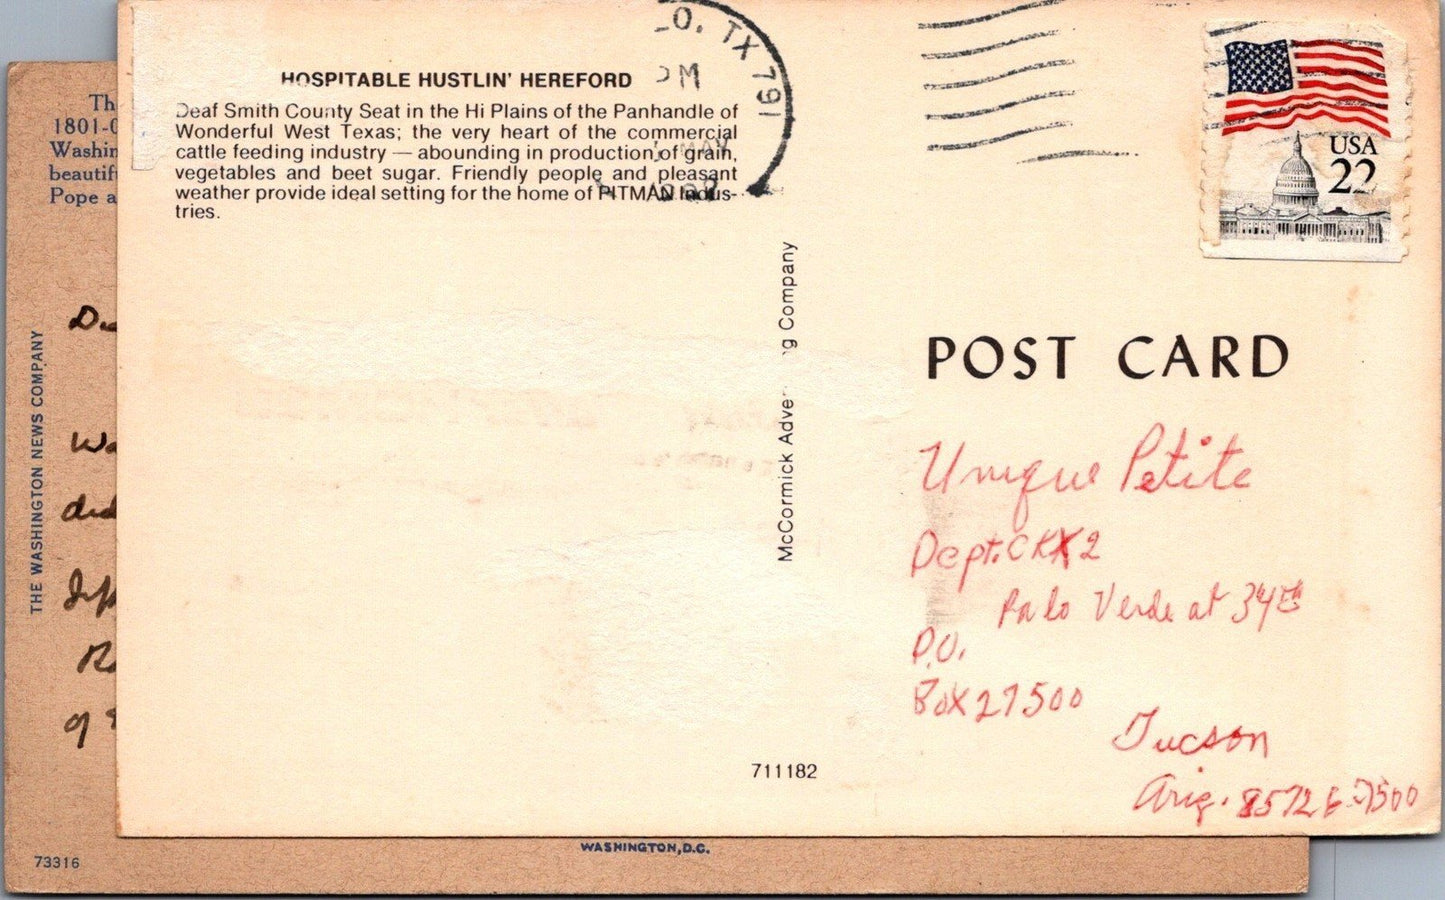 HOSPITABLE HUSTLIN' HEREFORD
Deaf Smith County Seat in the Hi Plains of the Panhandle of
Wonderful West Texas; the very heart of the commercial
cattle feeding industry — abounding in production of grain,
vegetables and beet sugar. Friendly people and pleasant
weather provide ideal setting for the home of PITMAN Indus-
tries.
O, TX 791
PM
MAY
USA
22
McCormick Adve g Company
POST CARD
Unique Petite
Dept. CKX2
Palo Verde at 34th
P.O.
Box 27500
Tucson
Ariz. 85726-7500
711182
Th
1801-0
Washin
beautif
Pope a
THE WASHINGTON NEWS COMPANY
De
Wa
did
Jeff
R
of
73316
WASHINGTON, D.C.